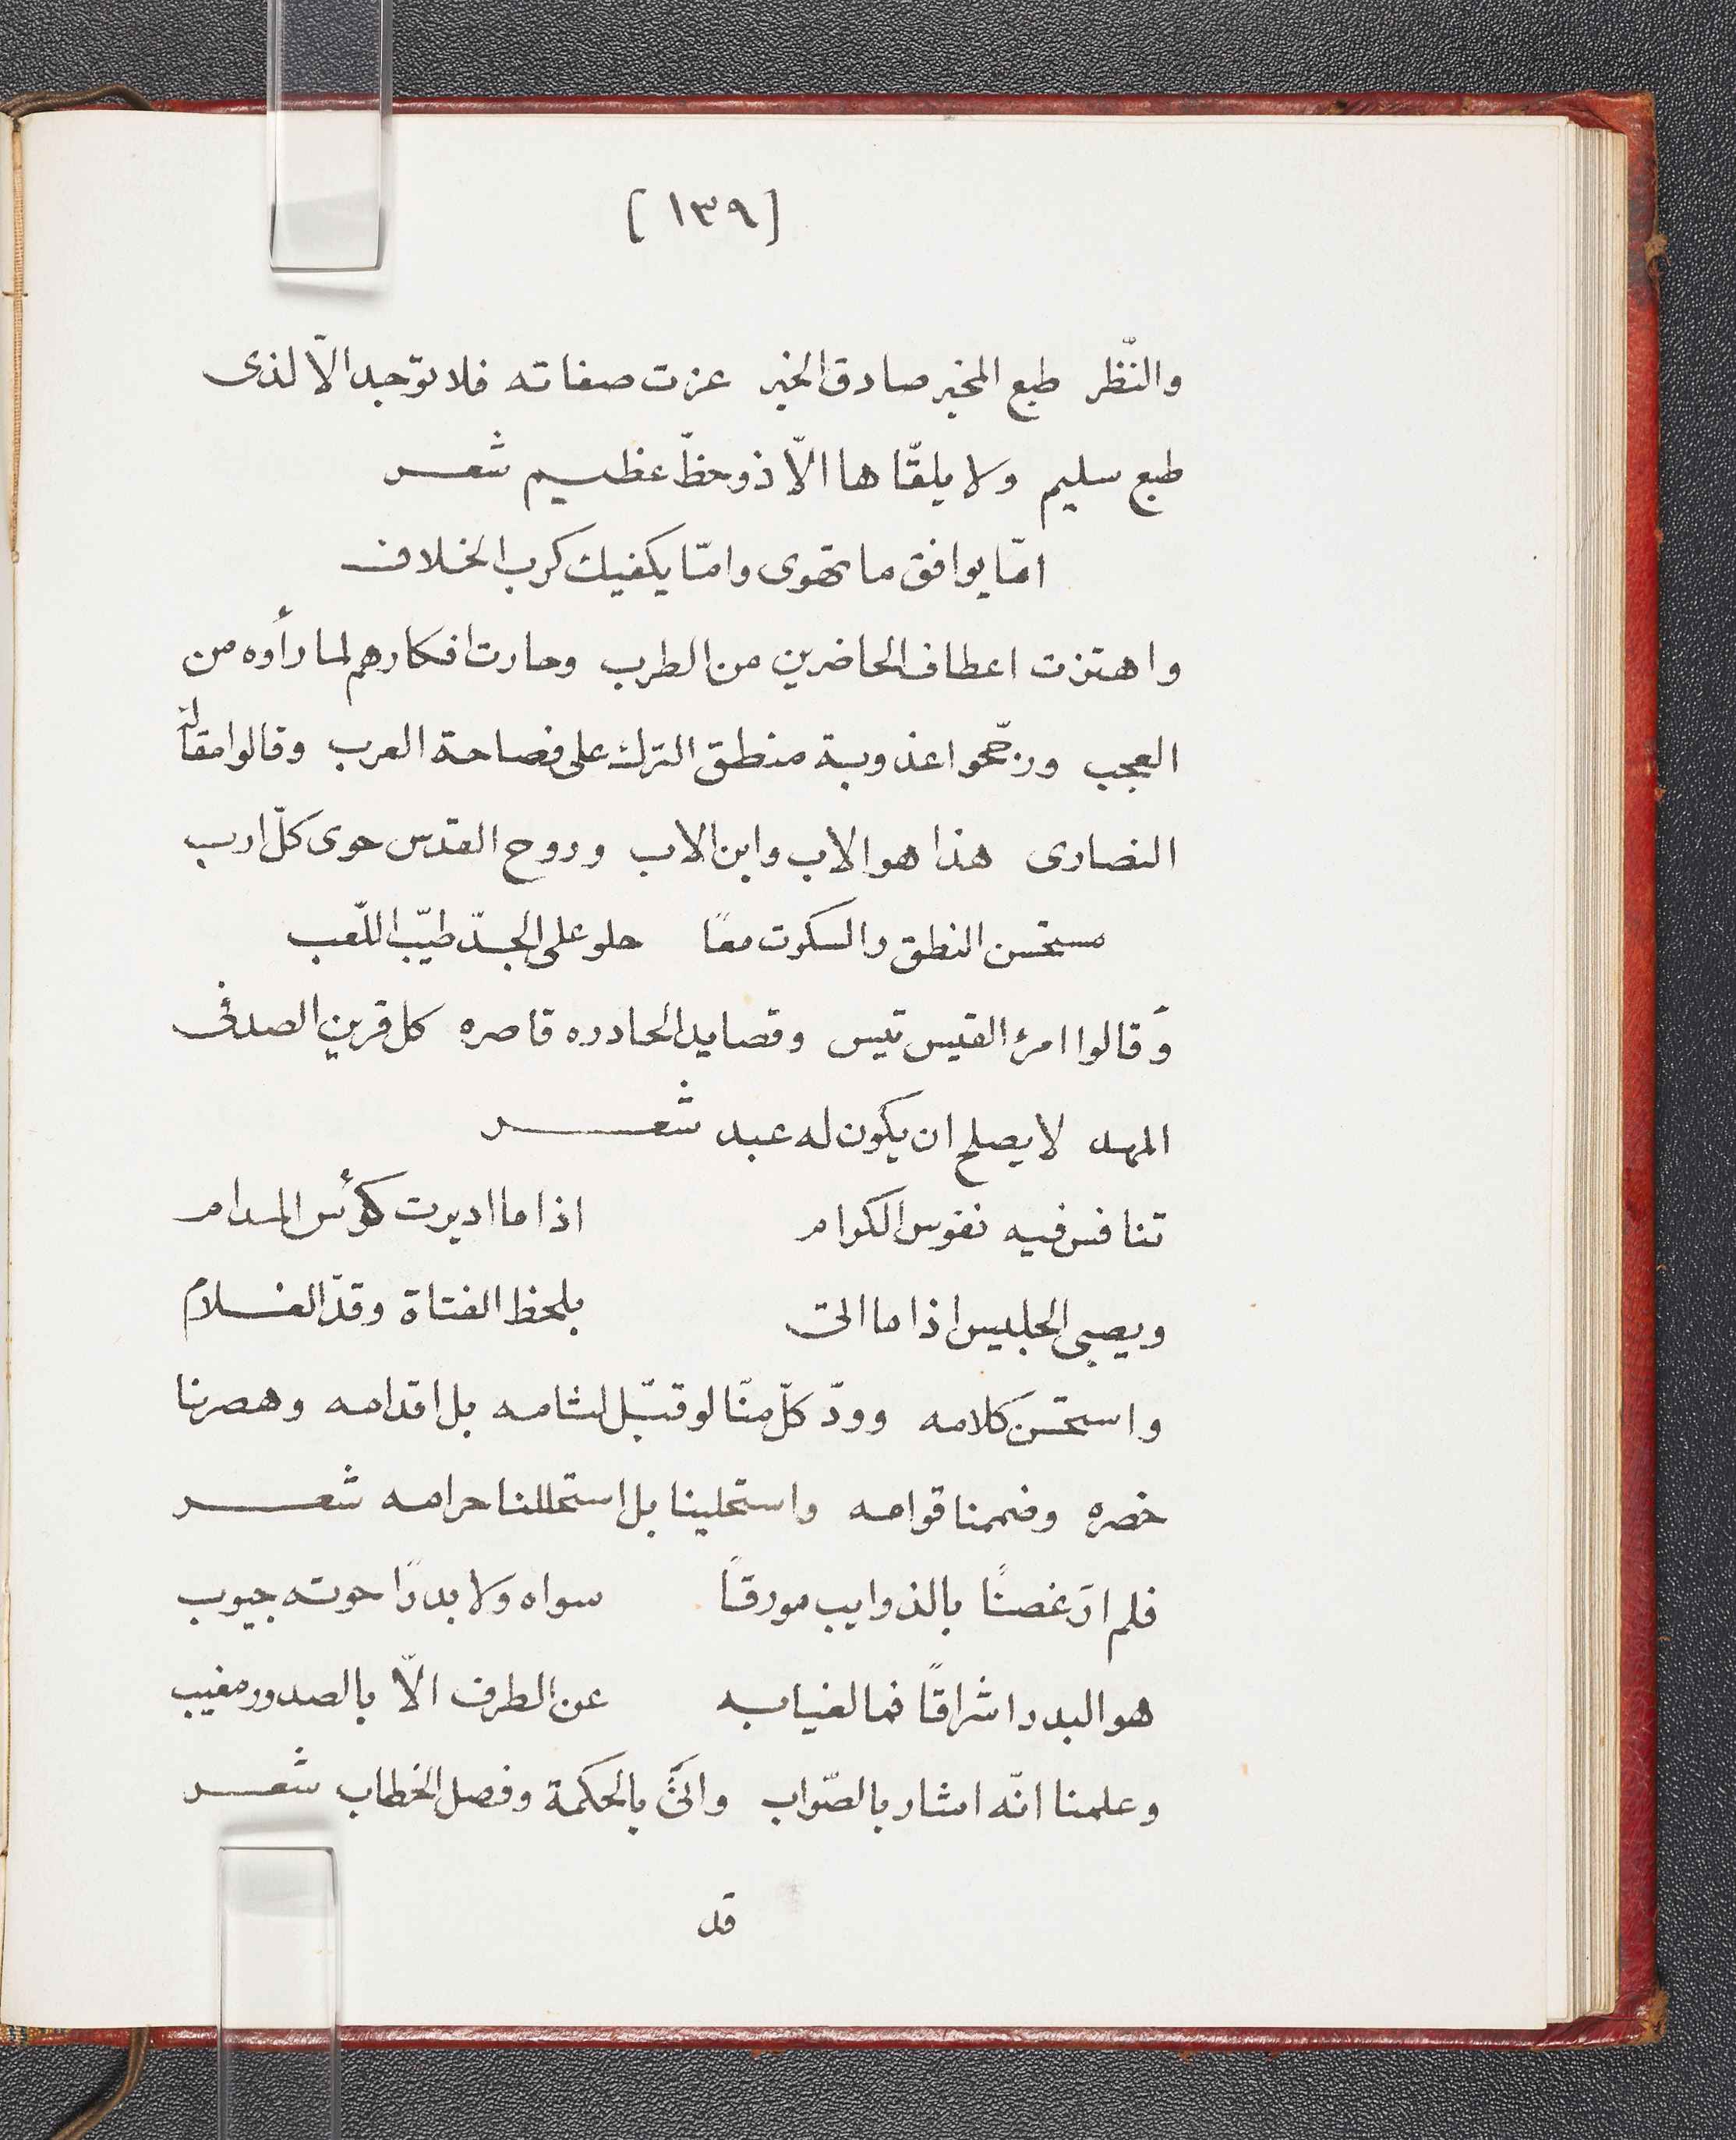 [١٣٩]
والنّظر طبع المخبر صادق الخبر عزت صفاته فلا توجد الّا لذى
طبع سليم ولا يلقّاها الّا ذو حظّ عظيم شعر
امّا يوافق ما تهوى وامّا يكفيك كرب الخلاف
واهتزت اعطاف الحاضرين من الطرب وحارت افكارهم لما رأوه من
العجب ورجّحوا عذوبة منطق الترك على فصاحة العرب وقالوا مقالة
النصارى هذا هو الاب وابن الاب وروح القدس حوى كلّ ارب
مستحسن النطق والسكوت معًا حلو على الجدّ طيّب اللّعب
وَقالوا امرئ القيس تيس وقصايد الحادره قاصره كل قرين الصدفى
المهد لا يصلح ان يكون له عبد شعر
تنافس فيه نفوس الكرام اذا ما اديرت كؤس المدام
ويصبى الجليس اذا ما اتى بلحظ الفتاة وقدّ الغلام
واستحسن كلامه وودّ كلّ منّا لو قبّل لثامه بل اقدامه وهصرنا
خصره وضممنا قوامه واستحلينا بل استحللنا حرامه شعر
فلم ارَ غصنًا بالذوايب مورقًا سواه ولا بدرًا حوته جيوب
هو البدر اشراقًا فما لغيابه عن الطرف الّا بالصدور مغيب
وعلمنا انّه اشار بالصّواب واتَى بالحكمة وفصل الخطاب شعر
قد